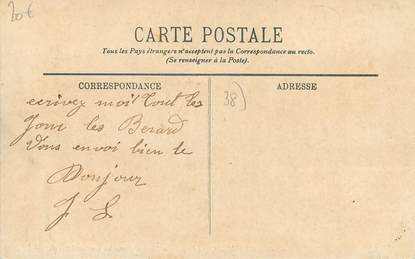 20€
CARTE POSTALE
Tous les Pays étrangers n'acceptent pas la Correspondance au recto.
(Se renseigner à la Poste).
CORRESPONDANCE
ADRESSE
38)
ecrivez moi tout les
Jour les Berard
Vous envoi bien le
Bonjour
J. S.